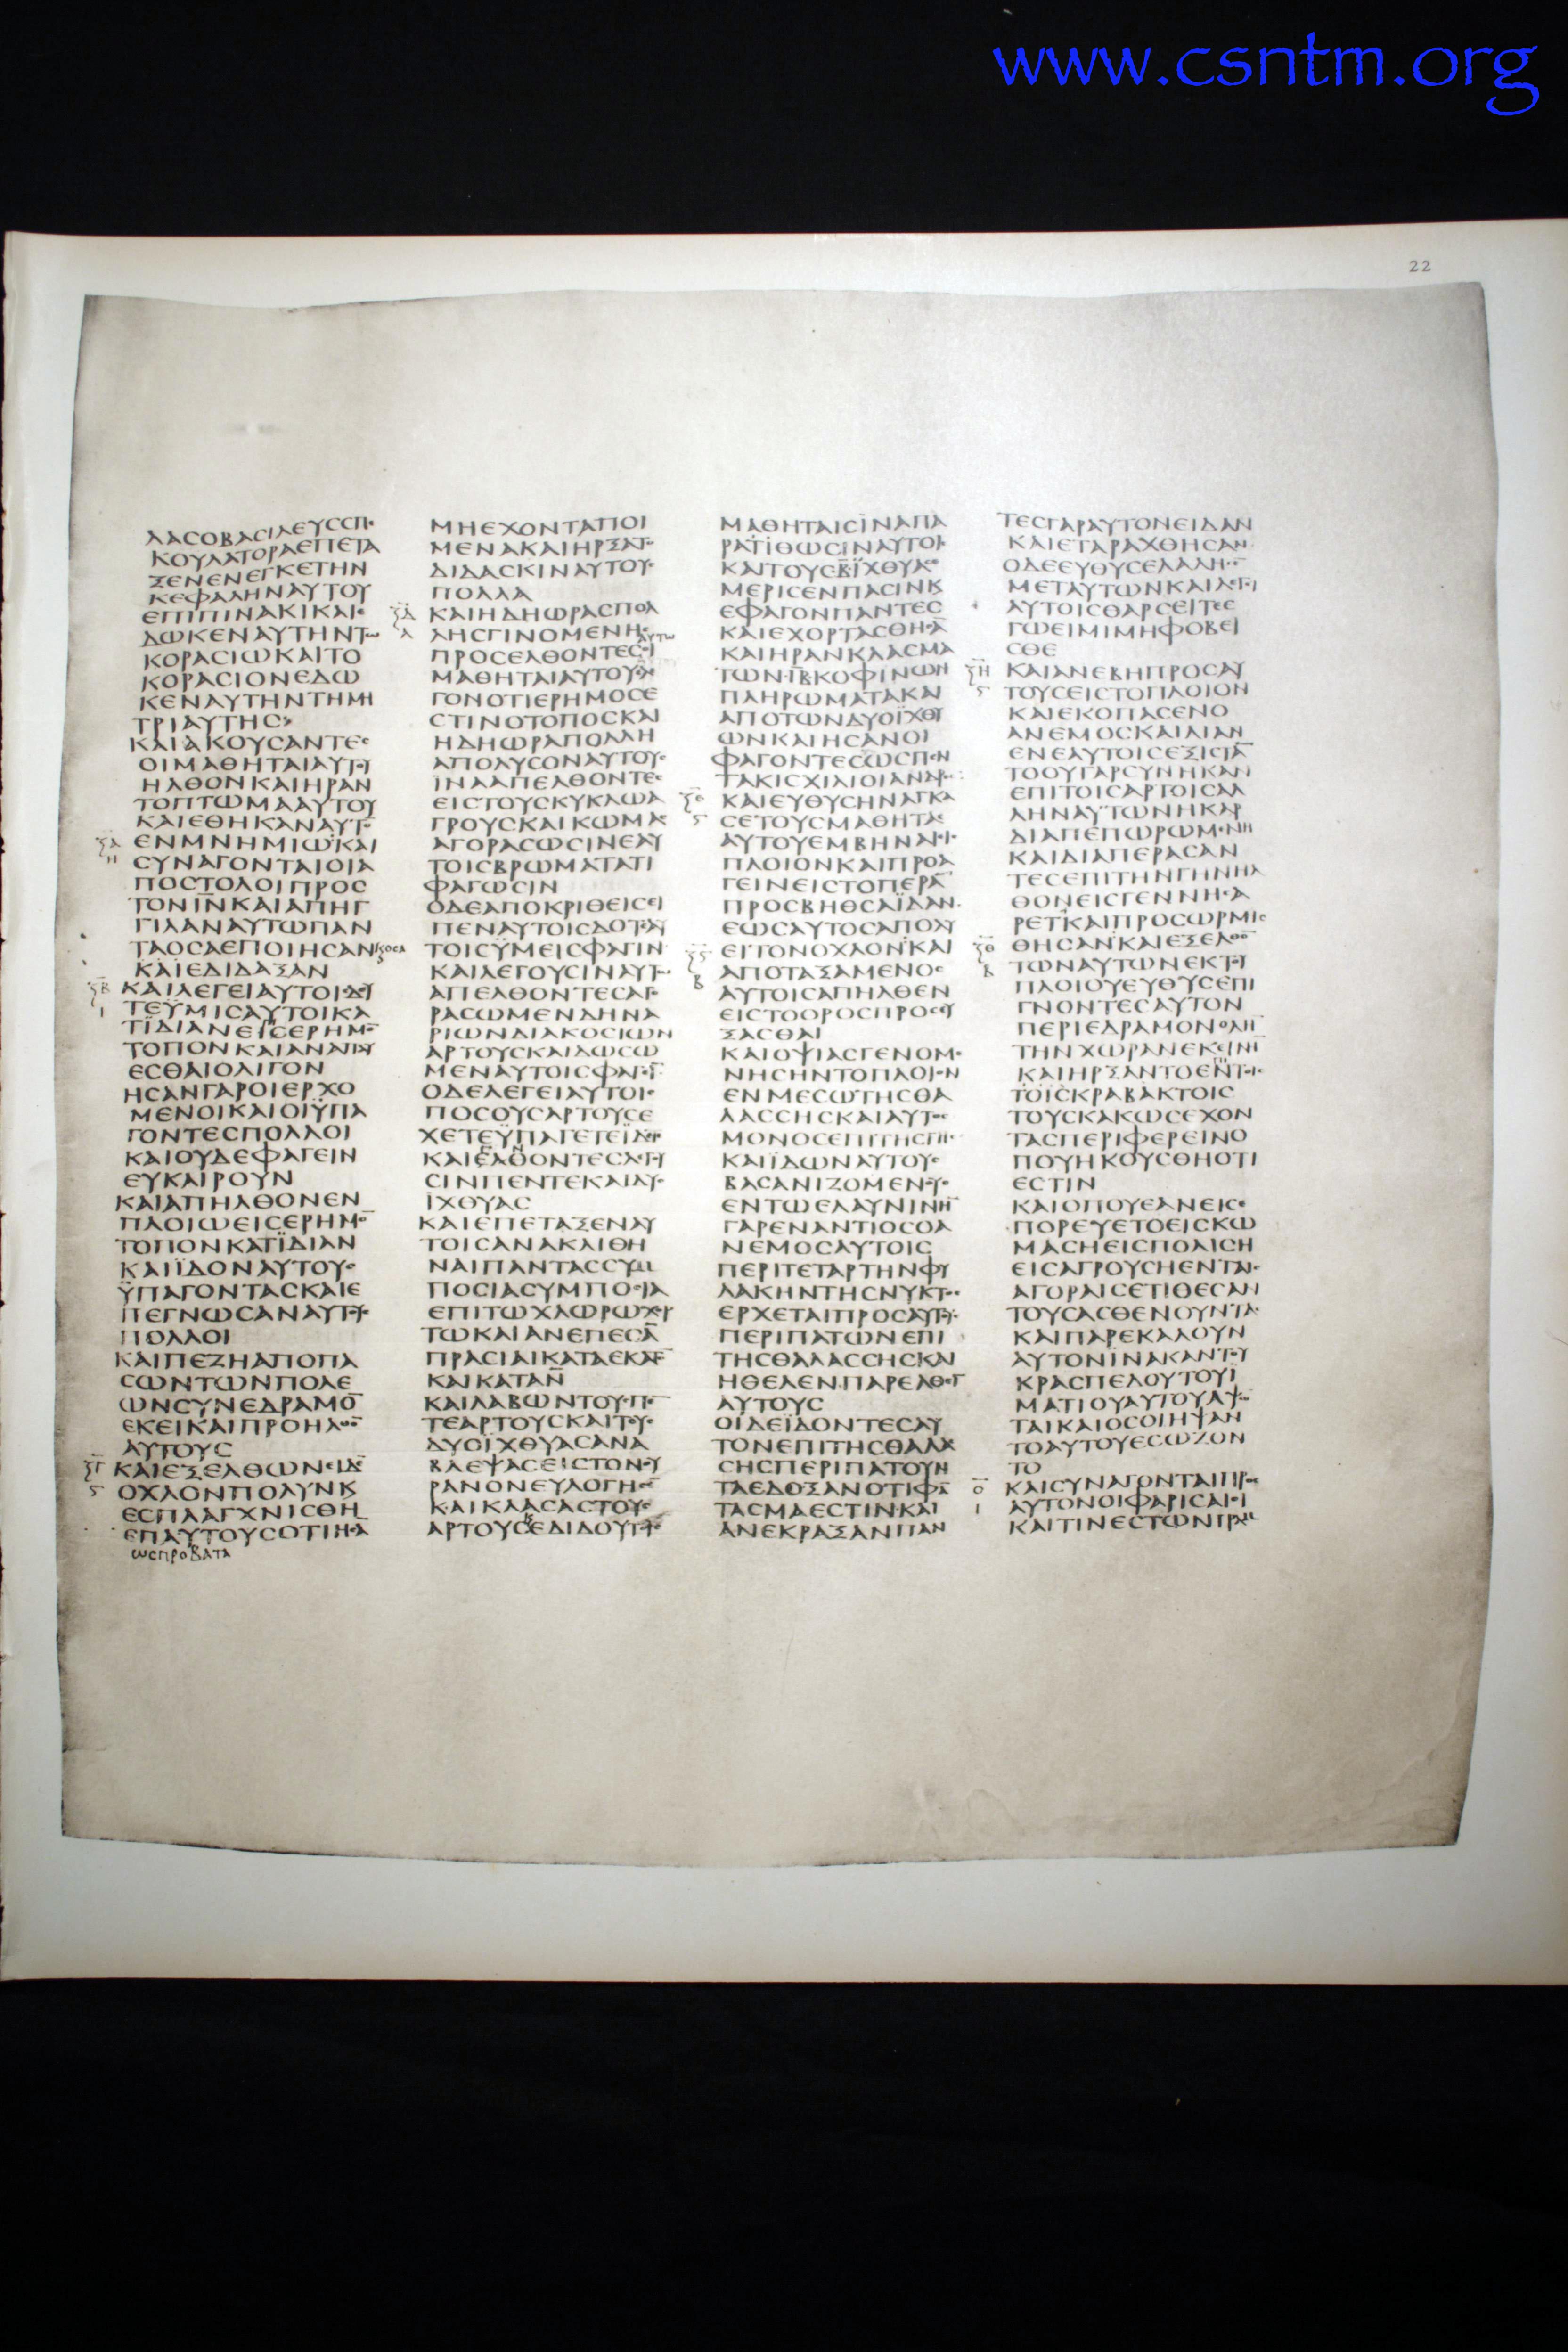 www.csntm.org
22
ΛΑСΟΒΑСΙΛΕΥССΠΕ
ΚΟΥΛΑΤΟΡΑΕΠΕΤΑ
ΞΕΝΕΝΕΓΚΕΤΗΝ
ΚΕΦΑΛΗΝΑΥΤΟΥ
ΕΠΙΠΙΝΑΚΙΚΑΙΕ
ΔΩΚΕΝΑΥΤΗΝΤΩ
ΚΟΡΑСΙΩΚΑΙΤΟ
ΚΟΡΑСΙΟΝΕΔΩ
ΚΕΝΑΥΤΗΝΤΗΜΗ
ΤΡΙΑΥΤΗС
ΚΑΙΑΚΟΥСΑΝΤΕС
ΟΙΜΑΘΗΤΑΙΑΥΤΟΥ
ΗΛΘΟΝΚΑΙΗΡΑΝ
ΤΟΠΤΩΜΑΑΥΤΟΥ
ΚΑΙΕΘΗΚΑΝΑΥΤΟ̅
ΕΝΜΝΗΜΙΩΚΑΙ
СΥΝΑΓΟΝΤΑΙΟΙΑ
ΠΟСΤΟΛΟΙΠΡΟС
ΤΟΝΙ̅Ν̅ΚΑΙΑΠΗΓ
ΓΙΛΑΝΑΥΤΩΠΑΝ
ΤΑΟСΑΕΠΟΙΗСΑΝ
ΚΑΙΕΔΙΔΑΞΑΝ
ΚΑΙΛΕΓΕΙΑΥΤΟΙСΔΕΥ
ΤΕΫΜΙСΑΥΤΟΙΚΑ
ΤΪΔΙΑΝΕΙСΕΡΗΜΟ̅
ΤΟΠΟΝΚΑΙΑΝΑΠΑΥ
ΕСΘΑΙΟΛΙΓΟΝ
ΗСΑΝΓΑΡΟΙΕΡΧΟ
ΜΕΝΟΙΚΑΙΟΙΫΠΑ
ΓΟΝΤΕСΠΟΛΛΟΙ
ΚΑΙΟΥΔΕΦΑΓΕΙΝ
ΕΥΚΑΙΡΟΥΝ
ΚΑΙΑΠΗΛΘΟΝΕΝ
ΠΛΟΙΩΕΙСΕΡΗΜΟ̅
ΤΟΠΟΝΚΑΤΪΔΙΑΝ
ΚΑΙΪΔΟΝΑΥΤΟΥС
ΫΠΑΓΟΝΤΑСΚΑΙΕ
ΠΕΓΝΩСΑΝΑΥΤΟΥС
ΠΟΛΛΟΙ
ΚΑΙΠΕΖΗΑΠΟΠΑ
СΩΝΤΩΝΠΟΛΕ
ΩΝСΥΝΕΔΡΑΜΟ̅
ΕΚΕΙΚΑΙΠΡΟΗΛΘΟ̅
ΑΥΤΟΥС
ΚΑΙΕΞΕΛΘΩΝΕΙΔΕ̅
ΟΧΛΟΝΠΟΛΥΝΚ
ΕСΠΛΑΓΧΝΙСΘΗ
ΕΠΑΥΤΟΥСΟΤΙΗСΑ
ΩСΠΡΟΒΑΤΑ
ΜΗΕΧΟΝΤΑΠΟΙ
ΜΕΝΑΚΑΙΗΡΞΑΤΟ
ΔΙΔΑСΚΙΝΑΥΤΟΥС
ΠΟΛΛΑ
ΚΑΙΗΔΗΩΡΑСΠΟΛ
ΛΗСΓΙΝΟΜΕΝΗС
ΠΡΟСΕΛΘΟΝΤΕСΟΙ
ΜΑΘΗΤΑΙΑΥΤΟΥΕΛΕ
ΓΟΝΟΤΙΕΡΗΜΟСΕ
СΤΙΝΟΤΟΠΟСΚΑΙ
ΗΔΗΩΡΑΠΟΛΛΗ
ΑΠΟΛΥСΟΝΑΥΤΟΥС
ΙΝΑΑΠΕΛΘΟΝΤΕС
ΕΙСΤΟΥСΚΥΚΛΩΑ
ΓΡΟΥСΚΑΙΚΩΜΑС
ΑΓΟΡΑСΩСΙΝΕΑΥ
ΤΟΙСΒΡΩΜΑΤΑΤΙ
ΦΑΓΩСΙΝ
ΟΔΕΑΠΟΚΡΙΘΕΙСΕΙ
ΠΕΝΑΥΤΟΙСΔΟΤΕΑΥ
ΤΟΙСΫΜΕΙСΦΑΓΙΝ
ΚΑΙΛΕΓΟΥСΙΝΑΥΤΩ
ΑΠΕΛΘΟΝΤΕСΑΓΟ
ΡΑСΩΜΕΝΔΗΝΑ
ΡΙΩΝΔΙΑΚΟСΙΩΝ
ΑΡΤΟΥСΚΑΙΔΩСΩ
ΜΕΝΑΥΤΟΙСΦΑΓΕΙ̅
ΟΔΕΛΕΓΕΙΑΥΤΟΙС
ΠΟСΟΥСΑΡΤΟΥСΕ
ΧΕΤΕΫΠΑΓΕΤΕΪΔΕΤΕ
ΚΑΙΕΛΘΟΝΤΕСΛΕΓΟΥ
СΙΝΠΕΝΤΕΚΑΙΔΥΟ
ΪΧΘΥΑС
ΚΑΙΕΠΕΤΑΞΕΝΑΥ
ΤΟΙСΑΝΑΚΛΙΘΗ
ΝΑΙΠΑΝΤΑССΥΜ
ΠΟСΙΑСΥΜΠΟСΙΑ
ΕΠΙΤΩΧΛΩΡΩΧΟΡ
ΤΩΚΑΙΑΝΕΠΕСΑ̅
ΠΡΑСΙΑΙΚΑΤΑΕΚΑΤΟ̅
ΚΑΙΚΑΤΑΝ̅
ΚΑΙΛΑΒΩΝΤΟΥСΠΕ̅
ΤΕΑΡΤΟΥСΚΑΙΤΟΥС
ΔΥΟΪΧΘΥΑСΑΝΑ
ΒΛΕΨΑСΕΙСΤΟΝΟΥ
ΡΑΝΟΝΕΥΛΟΓΗСΕ̅
ΚΑΙΚΛΑСΑСΤΟΥС
ΑΡΤΟΥСΕΔΙΔΟΥΤΟΙС
ΜΑΘΗΤΑΙСΪΝΑΠΑ
ΡΑΤΙΘΩСΙΝΑΥΤΟΙС
ΚΑΙΤΟΥСΒ̅ΪΧΘΥΑС
ΜΕΡΙСΕΝΠΑСΙΝΚ
ΕΦΑΓΟΝΠΑΝΤΕС
ΚΑΙΕΧΟΡΤΑСΘΗСΑ̅
ΚΑΙΗΡΑΝΚΛΑСΜΑ
ΤΩΝΙ̅Β̅ΚΟΦΙΝΩΝ
ΠΛΗΡΩΜΑΤΑΚΑΙ
ΑΠΟΤΩΝΔΥΟΪΧΘΥ
ΩΝΚΑΙΗСΑΝΟΙ
ΦΑΓΟΝΤΕСΩСΠΕΝ
ΤΑΚΙСΧΙΛΙΟΙΑΝΔΡΕС
ΚΑΙΕΥΘΥСΗΝΑΓΚΑ
СΕΤΟΥСΜΑΘΗΤΑС
ΑΥΤΟΥΕΜΒΗΝΑΙΕΙС
ΠΛΟΙΟΝΚΑΙΠΡΟΑ
ΓΕΙΝΕΙСΤΟΠΕΡΑ̅
ΠΡΟСΒΗΘСΑΪΔΑΝ
ΕΩСΑΥΤΟСΑΠΟΛΥ
ΕΙΤΟΝΟΧΛΟΝΚΑΙ
ΑΠΟΤΑΞΑΜΕΝΟС
ΑΥΤΟΙСΑΠΗΛΘΕΝ
ΕΙСΤΟΟΡΟСΠΡΟСΕΥ
ΞΑСΘΑΙ
ΚΑΙΟΨΙΑСΓΕΝΟΜΕ
ΝΗСΗΝΤΟΠΛΟΙΟΝ
ΕΝΜΕСΩΤΗСΘΑ
ΛΑССΗСΚΑΙΑΥΤΟС
ΜΟΝΟСΕΠΙΤΗСΓΗС
ΚΑΙΪΔΩΝΑΥΤΟΥС
ΒΑСΑΝΙΖΟΜΕΝΟΥС
ΕΝΤΩΕΛΑΥΝΙΝΗ̅
ΓΑΡΕΝΑΝΤΙΟСΟΑ
ΝΕΜΟСΑΥΤΟΙС
ΠΕΡΙΤΕΤΑΡΤΗΝΦΥ
ΛΑΚΗΝΤΗСΝΥΚΤΟС
ΕΡΧΕΤΑΙΠΡΟСΑΥΤΟΥС
ΠΕΡΙΠΑΤΩΝΕΠΙ
ΤΗСΘΑΛΑССΗСΚΑΙ
ΗΘΕΛΕΝΠΑΡΕΛΘΕΙ̅
ΑΥΤΟΥС
ΟΙΔΕΪΔΟΝΤΕСΑΥ
ΤΟΝΕΠΙΤΗСΘΑΛΑС
СΗСΠΕΡΙΠΑΤΟΥΝ
ΤΑΕΔΟΞΑΝΟΤΙΦΑ̅
ΤΑСΜΑΕСΤΙΝΚΑΙ
ΑΝΕΚΡΑΞΑΝΠΑΝ
ΤΕСΓΑΡΑΥΤΟΝΕΙΔΑΝ
ΚΑΙΕΤΑΡΑΧΘΗСΑΝ
ΟΔΕΕΥΘΥСΕΛΑΛΗСΕ̅
ΜΕΤΑΥΤΩΝΚΑΙΛΕΓΕΙ
ΑΥΤΟΙСΘΑΡСΕΙΤΕΕ
ΓΩΕΙΜΙΜΗΦΟΒΕΙ
СΘΕ
ΚΑΙΑΝΕΒΗΠΡΟСΑΥ
ΤΟΥСΕΙСΤΟΠΛΟΙΟΝ
ΚΑΙΕΚΟΠΑСΕΝΟ
ΑΝΕΜΟСΚΑΙΛΙΑΝ
ΕΝΕΑΥΤΟΙСΕΞΙСΤΑ̅
ΤΟΟΥΓΑΡСΥΝΗΚΑΝ
ΕΠΙΤΟΙСΑΡΤΟΙСΑΛ
ΛΗΝΑΥΤΩΝΗΚΑΡ
ΔΙΑΠΕΠΩΡΩΜΕΝΗ
ΚΑΙΔΙΑΠΕΡΑСΑΝ
ΤΕСΕΠΙΤΗΝΓΗΝΗΛ
ΘΟΝΕΙСΓΕΝΝΗСΑ
ΡΕΤΚΑΙΠΡΟСΩΡΜΙС
ΘΗСΑΝΚΑΙΕΞΕΛΘΟ̅
ΤΩΝΑΥΤΩΝΕΚΤΟΥ
ΠΛΟΙΟΥΕΥΘΥСΕΠΙ
ΓΝΟΝΤΕСΑΥΤΟΝ
ΠΕΡΙΕΔΡΑΜΟΝΟΛΗ̅
ΤΗΝΧΩΡΑΝΕΚΕΙΝΗ̅
ΚΑΙΗΡΞΑΝΤΟΕΝΤΟΙС
ΤΟΙСΚΡΑΒΑΚΤΟΙС
ΤΟΥСΚΑΚΩСΕΧΟΝ
ΤΑСΠΕΡΙΦΕΡΕΙΝΟ
ΠΟΥΗΚΟΥСΘΗΟΤΙ
ΕСΤΙΝ
ΚΑΙΟΠΟΥΕΑΝΕΙС
ΠΟΡΕΥΕΤΟΕΙСΚΩ
ΜΑСΗΕΙСΠΟΛΙСΗ
ΕΙСΑΓΡΟΥСΗΕΝΤΑΙС
ΑΓΟΡΑΙСΕΤΙΘΕСΑΝ
ΤΟΥСΑСΘΕΝΟΥΝΤΑС
ΚΑΙΠΑΡΕΚΑΛΟΥΝ
ΑΥΤΟΝΪΝΑΚΑΝΤΟΥ
ΚΡΑСΠΕΔΟΥΤΟΥΪ
ΜΑΤΙΟΥΑΥΤΟΥΑΨΩ̅
ΤΑΙΚΑΙΟСΟΙΗΨΑΝ
ΤΟΑΥΤΟΥΕСΩΖΟΝ
ΤΟ
ΚΑΙСΥΝΑΓΟΝΤΑΙΠΡΟС
ΑΥΤΟΝΟΙΦΑΡΙСΑΙΟΙ
ΚΑΙΤΙΝΕСΤΩΝΓΡΑΜ